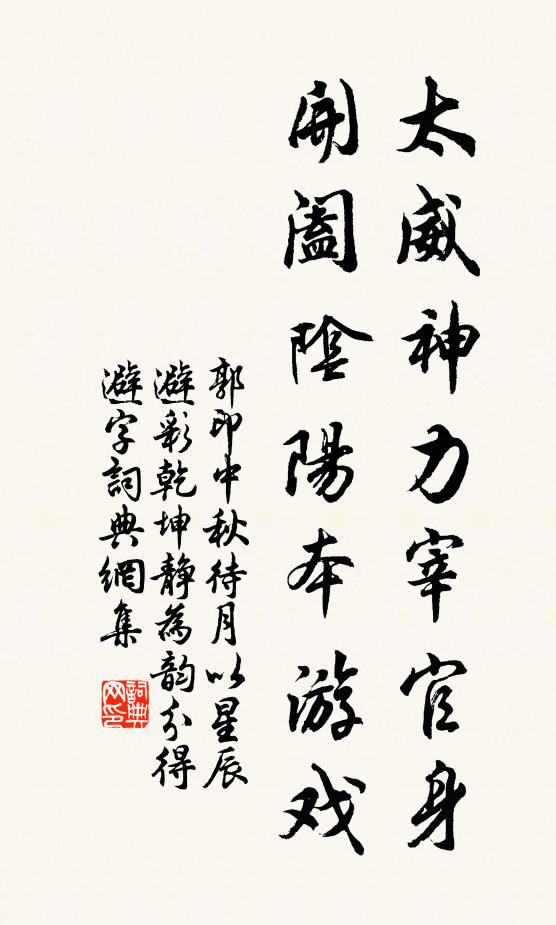 太威神力宰官身
開闔陰陽本游戏
郭印中秋待月以星辰
避彩乾坤静為韵分得
避字詞典網集
詞典
网印